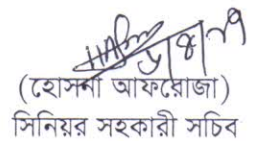 (হোসনা আফরোজা)
সিনিয়র সহকারী সচিব